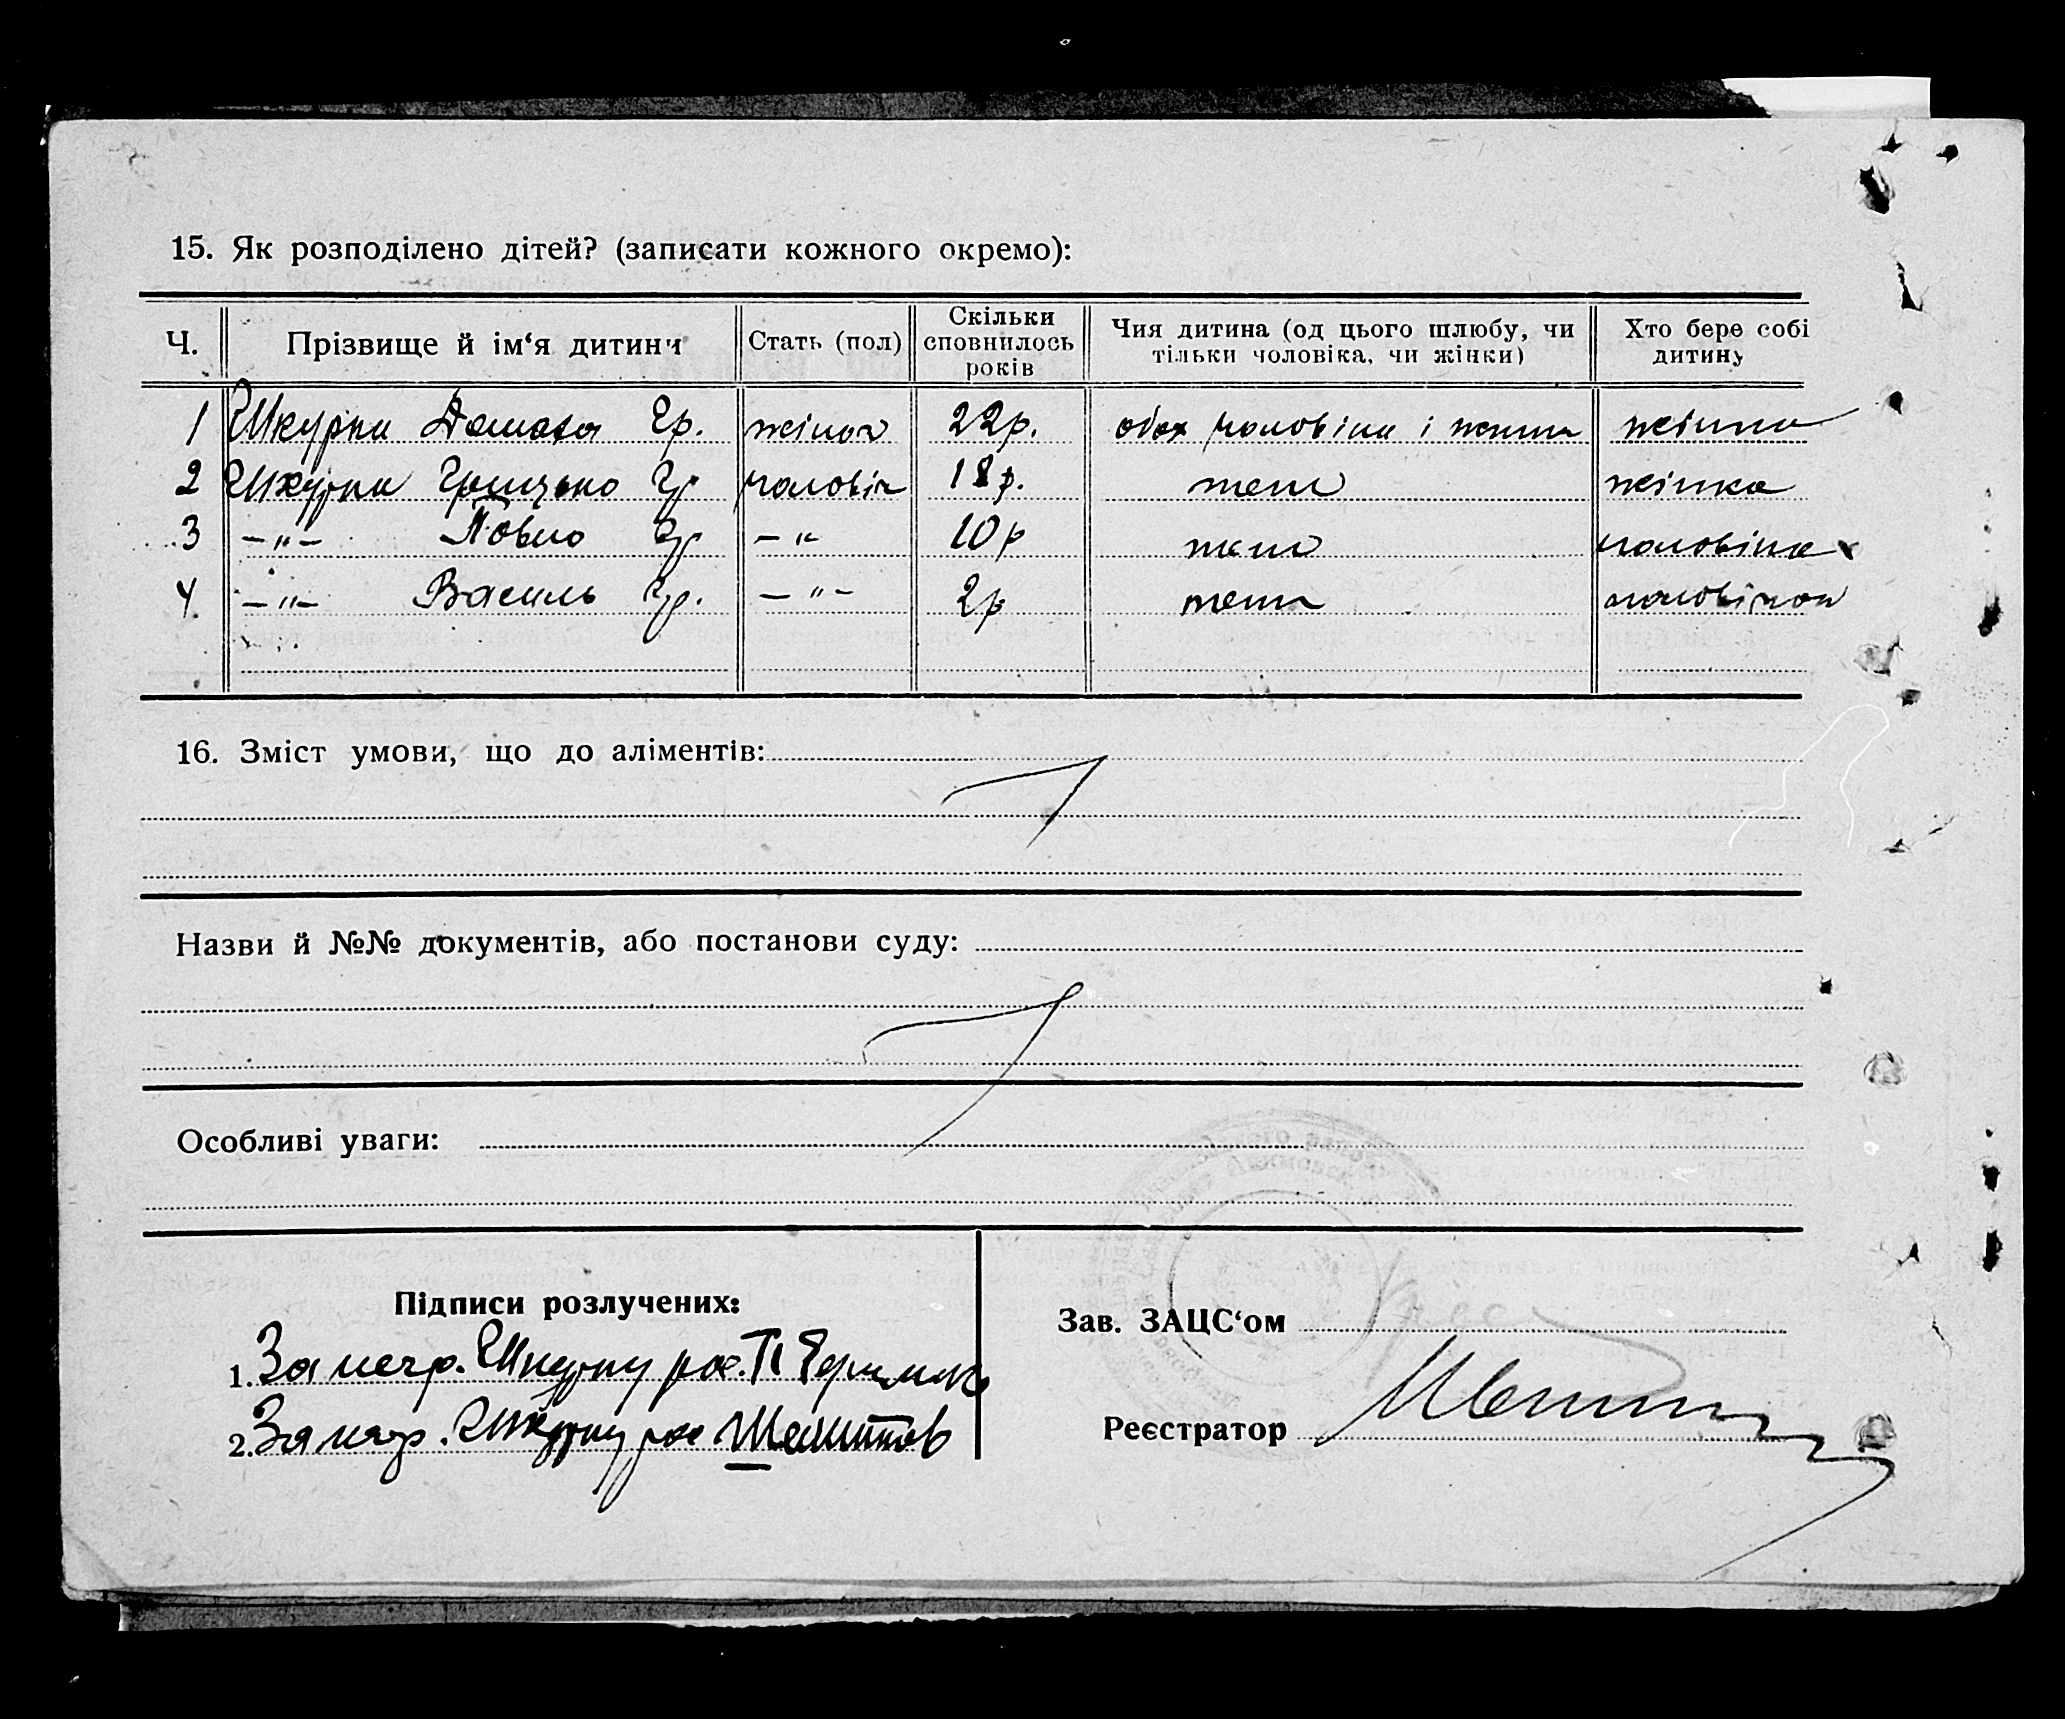 15. Як розподілено дітей? (записати кожного окремо):
Ч. Прізвище й ім‘я дитини Стать (пол) Скільки сповнилось років Чия дитина (од цього шлюбу, чи тільки чоловіка, чи жінки) Хто бере собі дитину
1 Шкурка Гр. 22р. обох чоловіка і жінки жінка
2 Шкурка Грицько Гр. чоловіч 18р. жінка
3 —"— Павло Гр. —"— 10р чоловіка
4 —"— Василь Гр. —"— 2р
16. Зміст умови, що до аліментів:
Назви й №№ документів, або постанови суду:
Особливі уваги:
Підписи розлучених:
1. За негр. Шкурку рос. П
2. За негр. Шкурку рос
Зав. ЗАЦС‘ом
Реєстратор